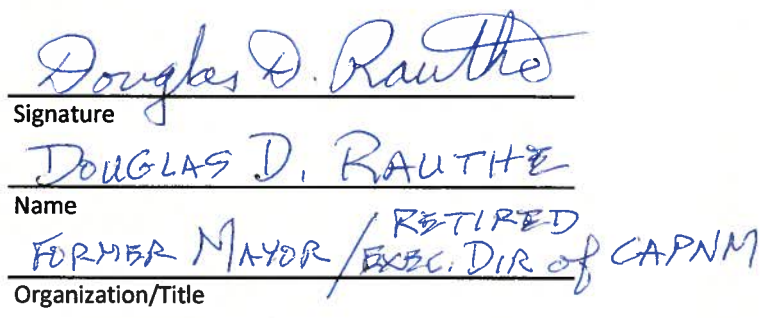 Douglas D. Rauthe
Signature
DOUGLAS D. RAUTHE
Name
FORMER MAYOR / RETIRED
EXEC. DIR of CAPNM
Organization/Title